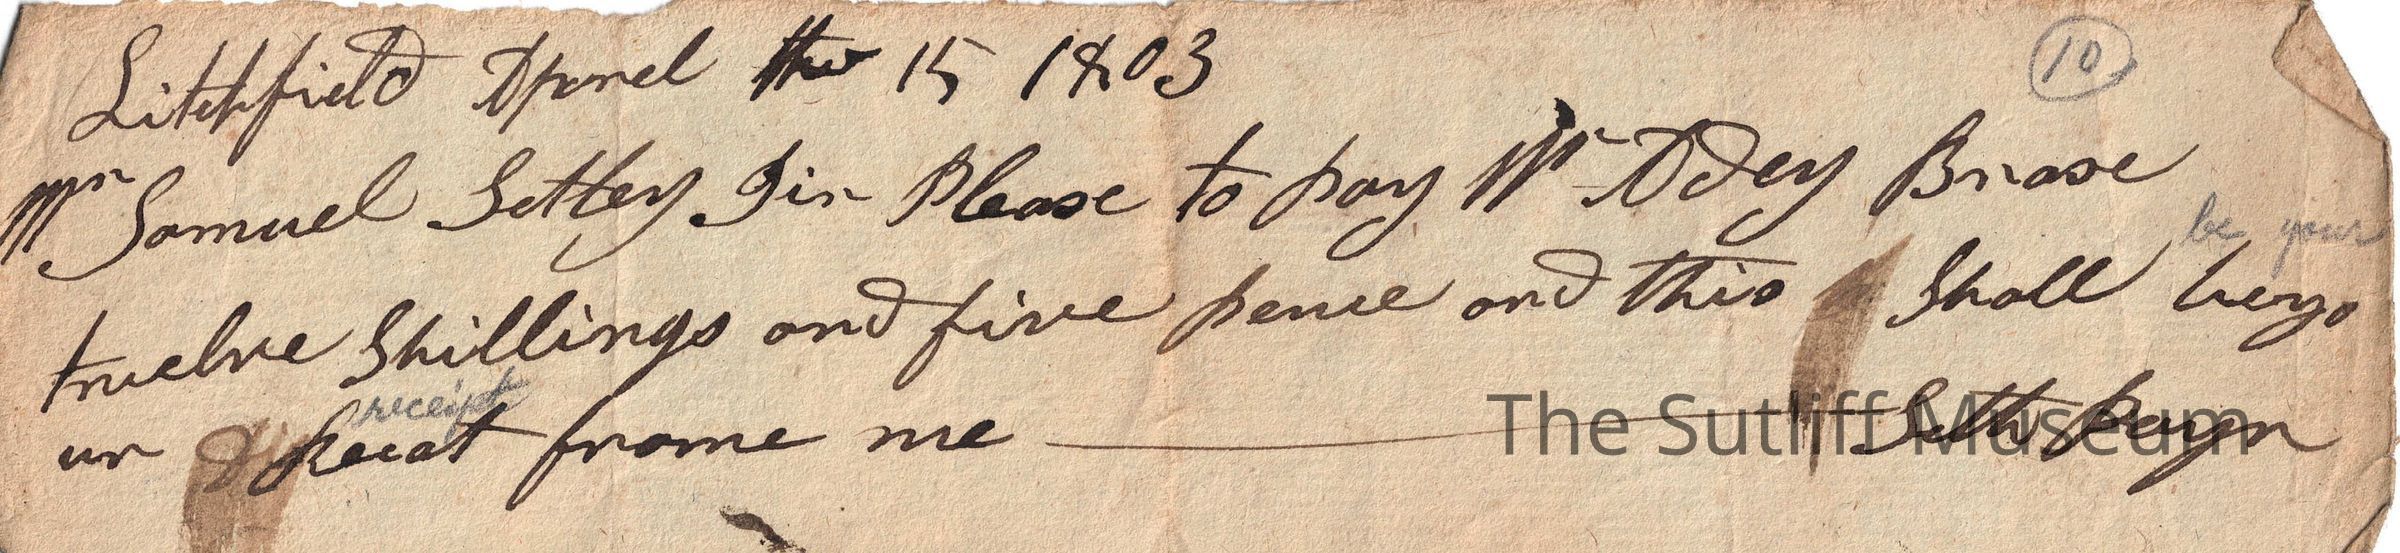 Litchfield Aporel the 15 1803
10
Mr Samuel Settey Sir Please to pay Mr Adey Brase
be your
twelve Shillings and five pence and this Shall beyo
receipt
ur Receat frome me Seth Payn
The Sutliff Museum